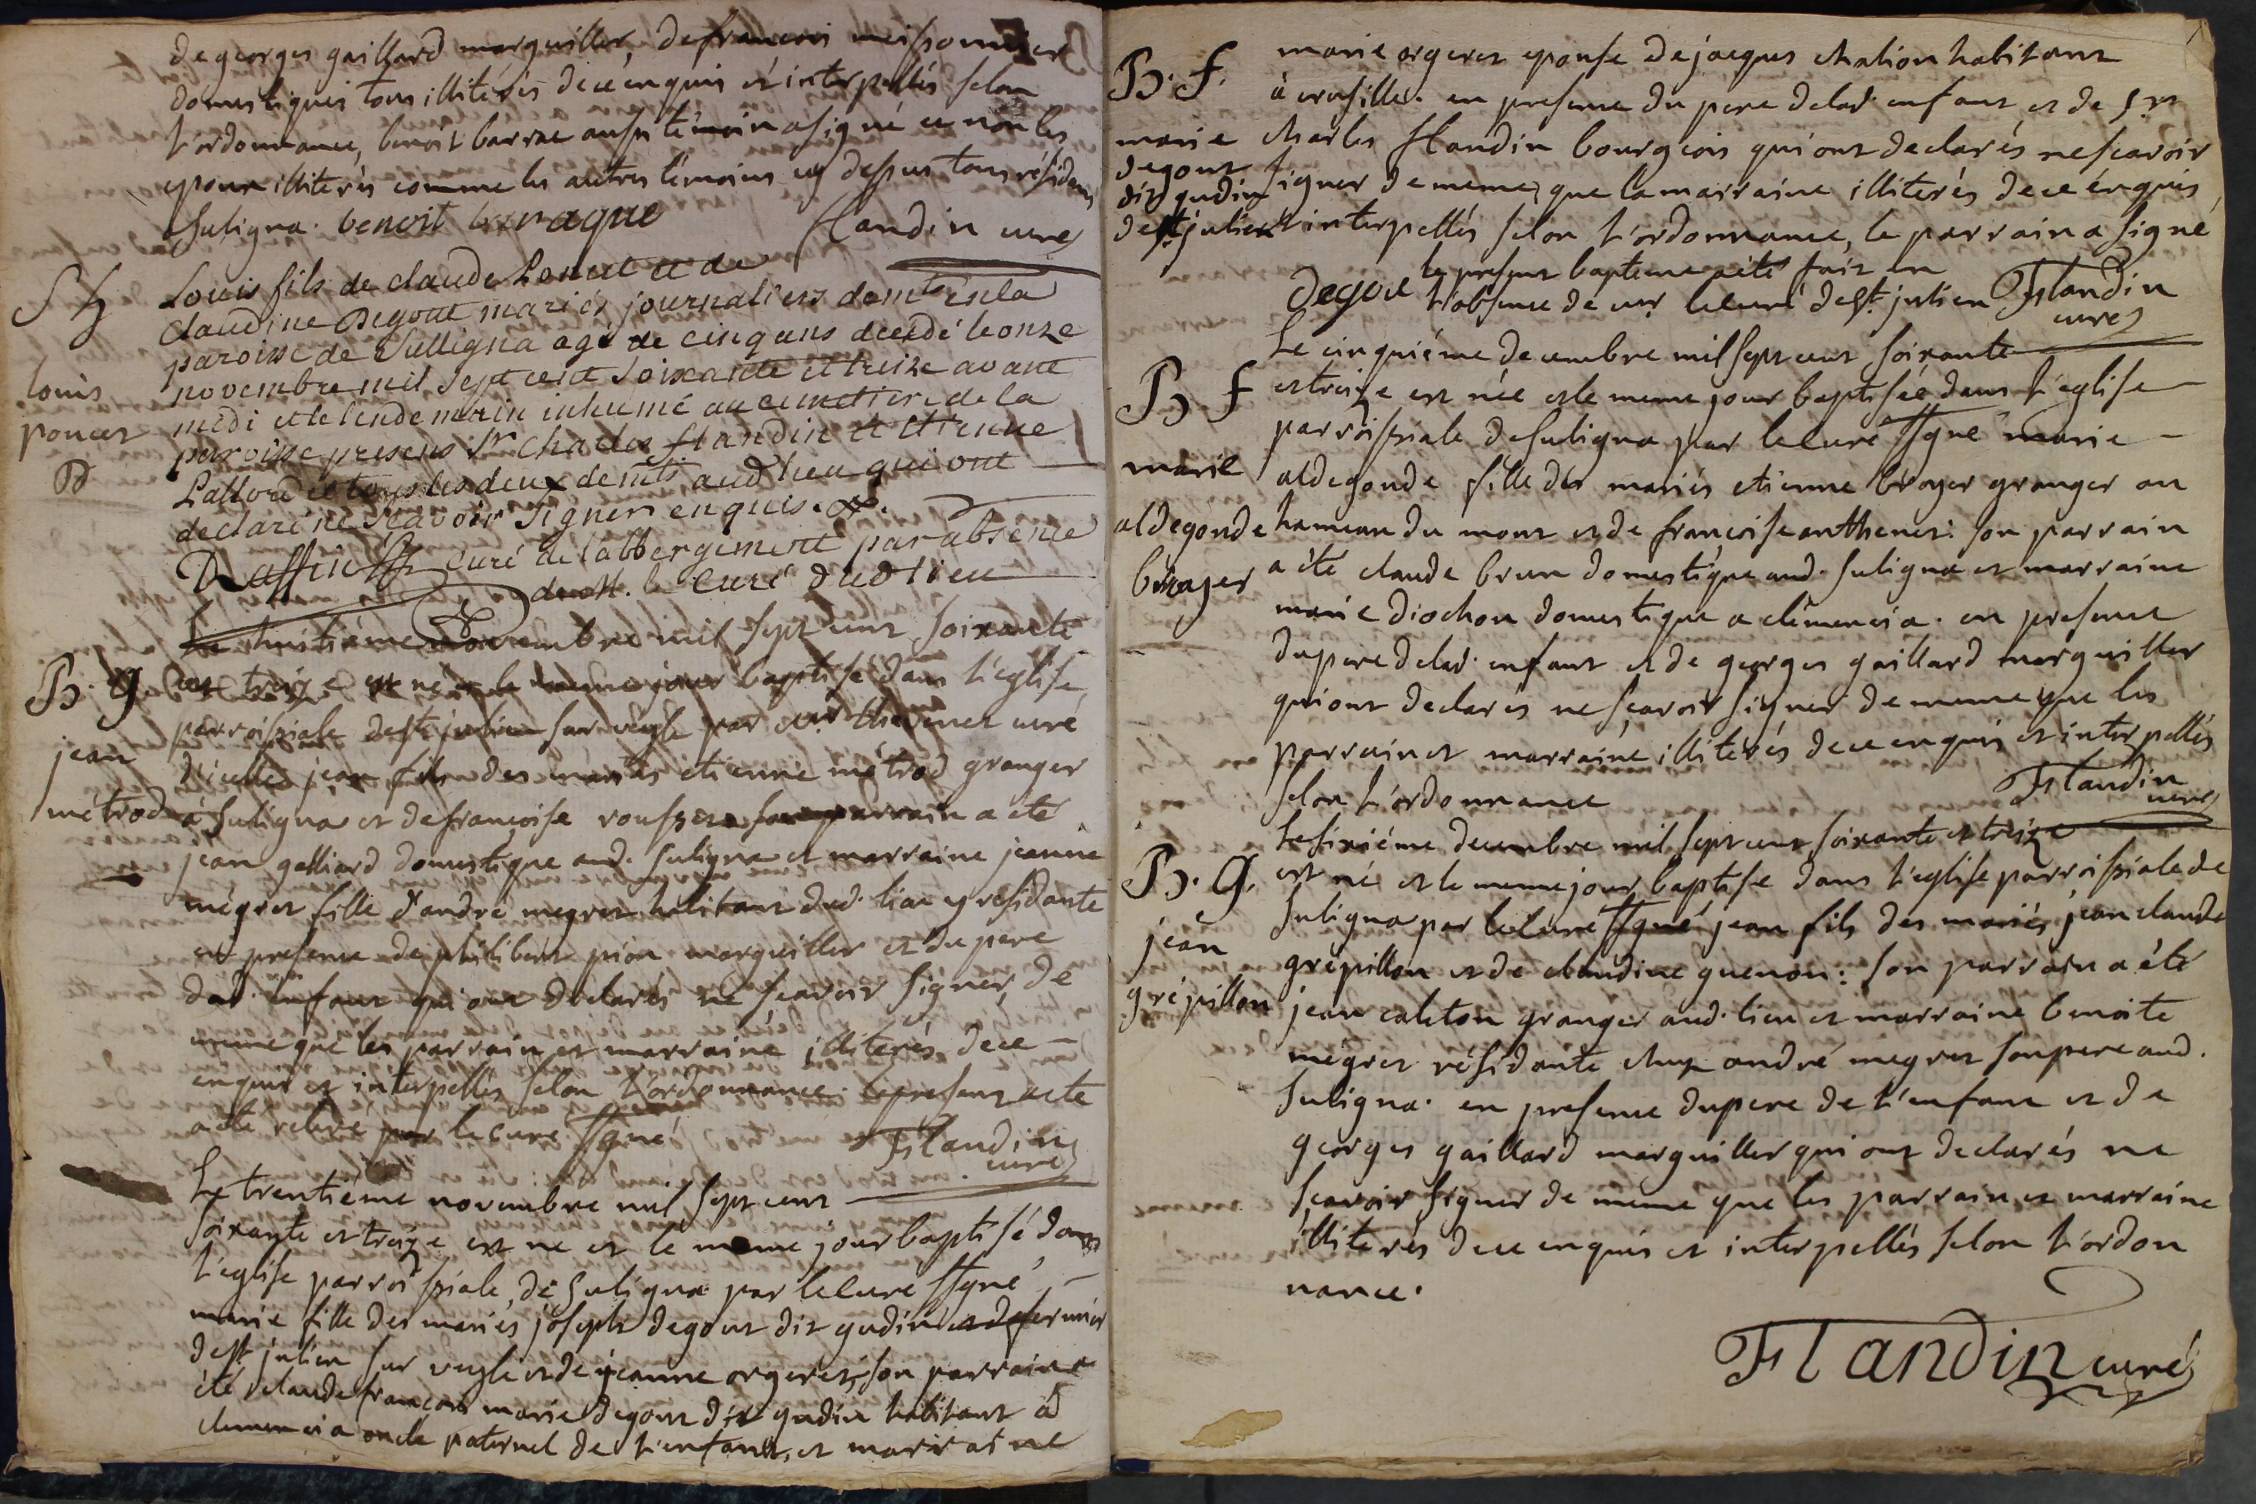 de georges gaillard marguiller, de francois meissonnier
domestiques tous illiterés de ce enquis et interpellés selon
l'ordonnance, benoit barrac aussi témoin a signé et non les
epoux illiterés comme les autres témoins cy dessus tous résidens
a suligna. benoit baraque Flandin curé
S h
louis
poncet
D
Louis fils de claude Poncet et de
claudine Degout mariés journaliers demts en la
paroisse de Sulligna agé de cinq ans decedé le onze
novembre mil sept cent soixante et treize avant
midi et le lendemain inhumé au cimetiere de la
paroisse presens Sr Charles flandin et etienne
tous les deux demts aud lieu qui ont
declaré ne scavoir signer enquis. &.
Raffin curé de l'abbergement par absence
de M. le curé dud lieu
Le huitiéme novembre mil sept cent soixante
B. g.
jean
métrod
et treize est né et le meme jour baptisé dans l'eglise
parroissiale de st julien sur veyle par mr thevenet curé
d'icelle jean fils des mariés etienne métrod granger
à suligna et de francoise rousset son parrain a été
jean galliard domestique aud. suligna et marraine jeanne
mégret fille d'andré megret habitant dud. lieu y residante
en presence de philibert pion marguiller et du pere
dud. enfant qui ont declarés ne scavoir signer, de
meme que les parrain et marraine illiterés de ce
enquis et interpellés selon l'ordonnance. le present acte
a été relevé par le curé ssgné
Flandin curé
Le trentiéme novembre mil sept cent
soixante et treize est né et le meme jour baptisé dans
l'eglise parroissiale de suligna par le curé ssgné
marie fille des mariés joseph degout dit gudin fermier
de st julien sur veyle et de jeanne orgeret, son parrain a
été claude françois marie degout dit gudin habitant à
clemencia oncle paternel de l'enfant, et marraine
B. f.
marie
degout
dit gudin
de st julien
marie orgeret epouse de jacques chation habitant
à crusilles. en presence du pere delad. enfant et de sr
charles flandin bourgeois qui ont declarés ne scavoir
signer de meme que la marraine illiterés de ce enquis
et interpellés selon l'ordonnance, le parrain a signé
degout le present bapteme a été fait en
l'absence de mr le curé de st. julien Flandin curé
B. f
marie
aldegonde
broyer
Le cinquiéme decembre mil sept cent soixante
et treize est née et le meme jour baptisée dans l'eglise
parroissiale de suligna par le curé ssgné marie
aldegonde fille des mariés etienne broyer granger au
hameau du mont et de françoise anthenet: son parrain
a été claude brun domestique aud. suligna et marraine
marie diochon domestique a clémencia. en presence
du pere delad. enfant et de georges gaillard marguiller
qui ont declarés ne sçavoir signer de meme que les
parrain et marraine illiterés de ce enquis et interpellés
selon l'ordonnance Flandin curé
B. g.
jean
grépillon
Le sixiéme decembre mil sept cent soixante et treize
est né et le meme jour baptisé dans l'eglise parroissiale de
suligna par le curé ssgné jean fils des mariés jean claude
grépillon et de claudine guenon: son parrain a été
jean caleton granger aud. lieu et marraine benoite
mégret résidante chez andré megret son pere aud.
suligna. en presence du pere de l'enfant et de
georges gaillard marguiller qui ont declarés ne
sçavoir signer de meme que les parrain et marraine
illiterés de ce enquis et interpellés selon l'ordon
nance.
Flandin curé